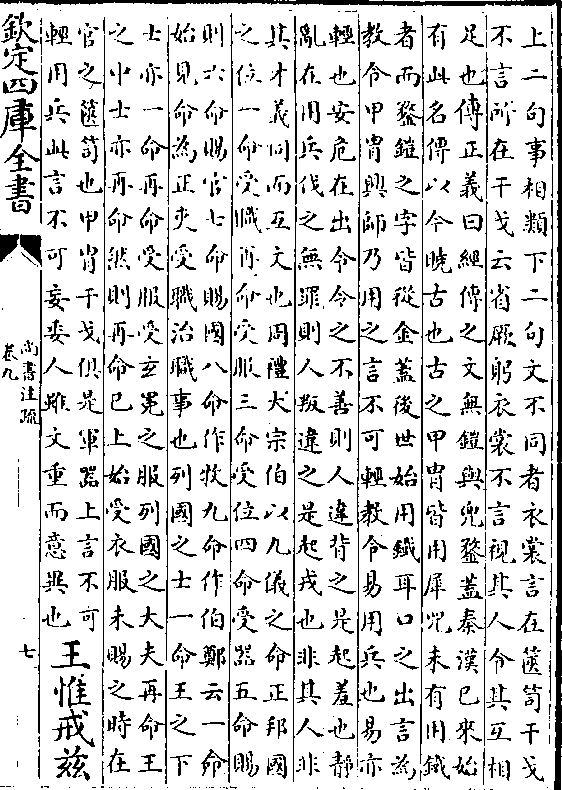 上二句事相類下二句文不同者衣裳言在篋笥干戈
不言所在干戈云省厥躬衣裳不言視其人令其互相
足也傳正義曰經傳之文無鎧與兜鍪蓋秦漢已來始
有此名傳以今曉古也古之甲冑皆用犀兕未有用鐵
者而鍪鎧之字皆從金蓋後世始用鐵耳口之出言為
教令甲冑興師乃用之言不可輕教令易用兵也易亦
輕也安危在出令令之不善則人違背之是起羞也靜
亂在用兵伐之無罪則人叛違之是起戎也非其人非
其才義同而互文也周禮大宗伯以九儀之命正邦國
之位一命受職再命受服三命受位四命受器五命賜
則六命賜官七命賜國八命作牧九命作伯鄭云一命
始見命為正吏受職治職事也列國之士一命王之下
士亦一命再命受服受玄冕之服列國之大夫再命王
之中士亦再命然則再命已上始受衣服未賜之時在
官之篋笥也甲冑干戈俱是軍器上言不可
輕用兵此言不可妄委人雖文重而意異也
王惟戒茲
欽定四庫全書
尚書注疏
卷九
七